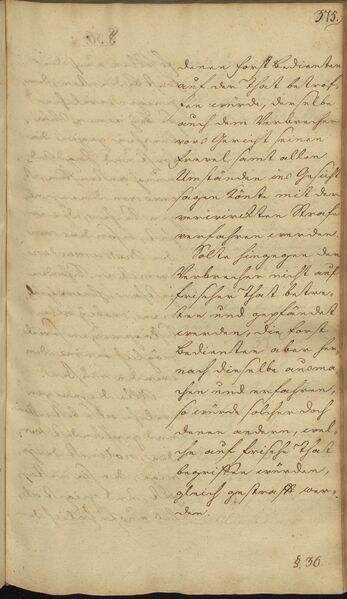 375.
denen Forst bedienten
auf der That betrof-
fen würde, derselbe
auch dem Verbrecher
vors Gericht seinen
Frevel samt allen
Umständen ins Gesicht
sagen könte mit der
verwirckten Straf
verfahren werden.
Solte hingegen der
Verbrecher nicht auf
frischer That betret-
ten und gepfändet
werden, die Forst
bediente aber her-
nach dieselbe ausma-
chen und erfahren,
so würde solcher doch
denen andern, wel-
che auf frische That
begriffen würden,
gleich gestrafft wer-
den.
§. 36